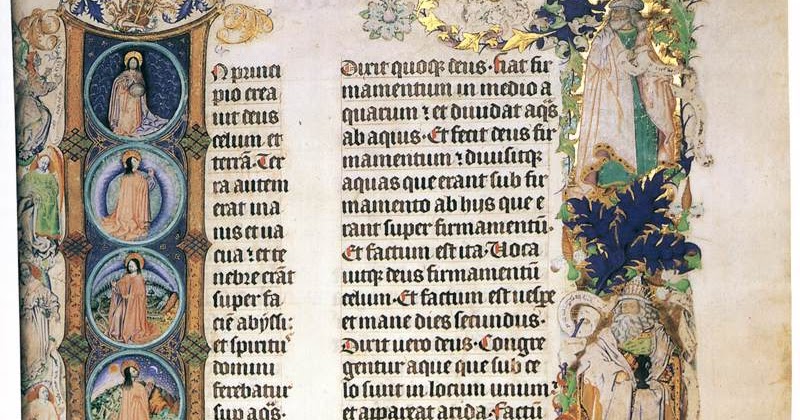 N princi
pio crea
uit deus
celum et
terrā. Ter
ra autem
erat ina
nis et ua
cua ⁊ et te
nebre erāt
super fa
ciē abyssi:
et spiritu
domini
ferebatur
sup aqs.
Dixit quoqꝫ deus. fiat fir
mamentum in medio a
quarum ⁊ et diuidat aqs̄
ab aquis. Et fecit deus fir
mamentum ⁊ diuisitqꝫ
aquas que erant sub fir
mamento ab hijs que e
rant super firmamentū.
Et factum est ita. Uoca
uitqꝫ deus firmamentū
celum. Et factum est uespe
et mane dies secundus.
Dixit uero deus. Congre
gentur aque que sub ce
lo sunt in locum unum
et appareat arida. Factū